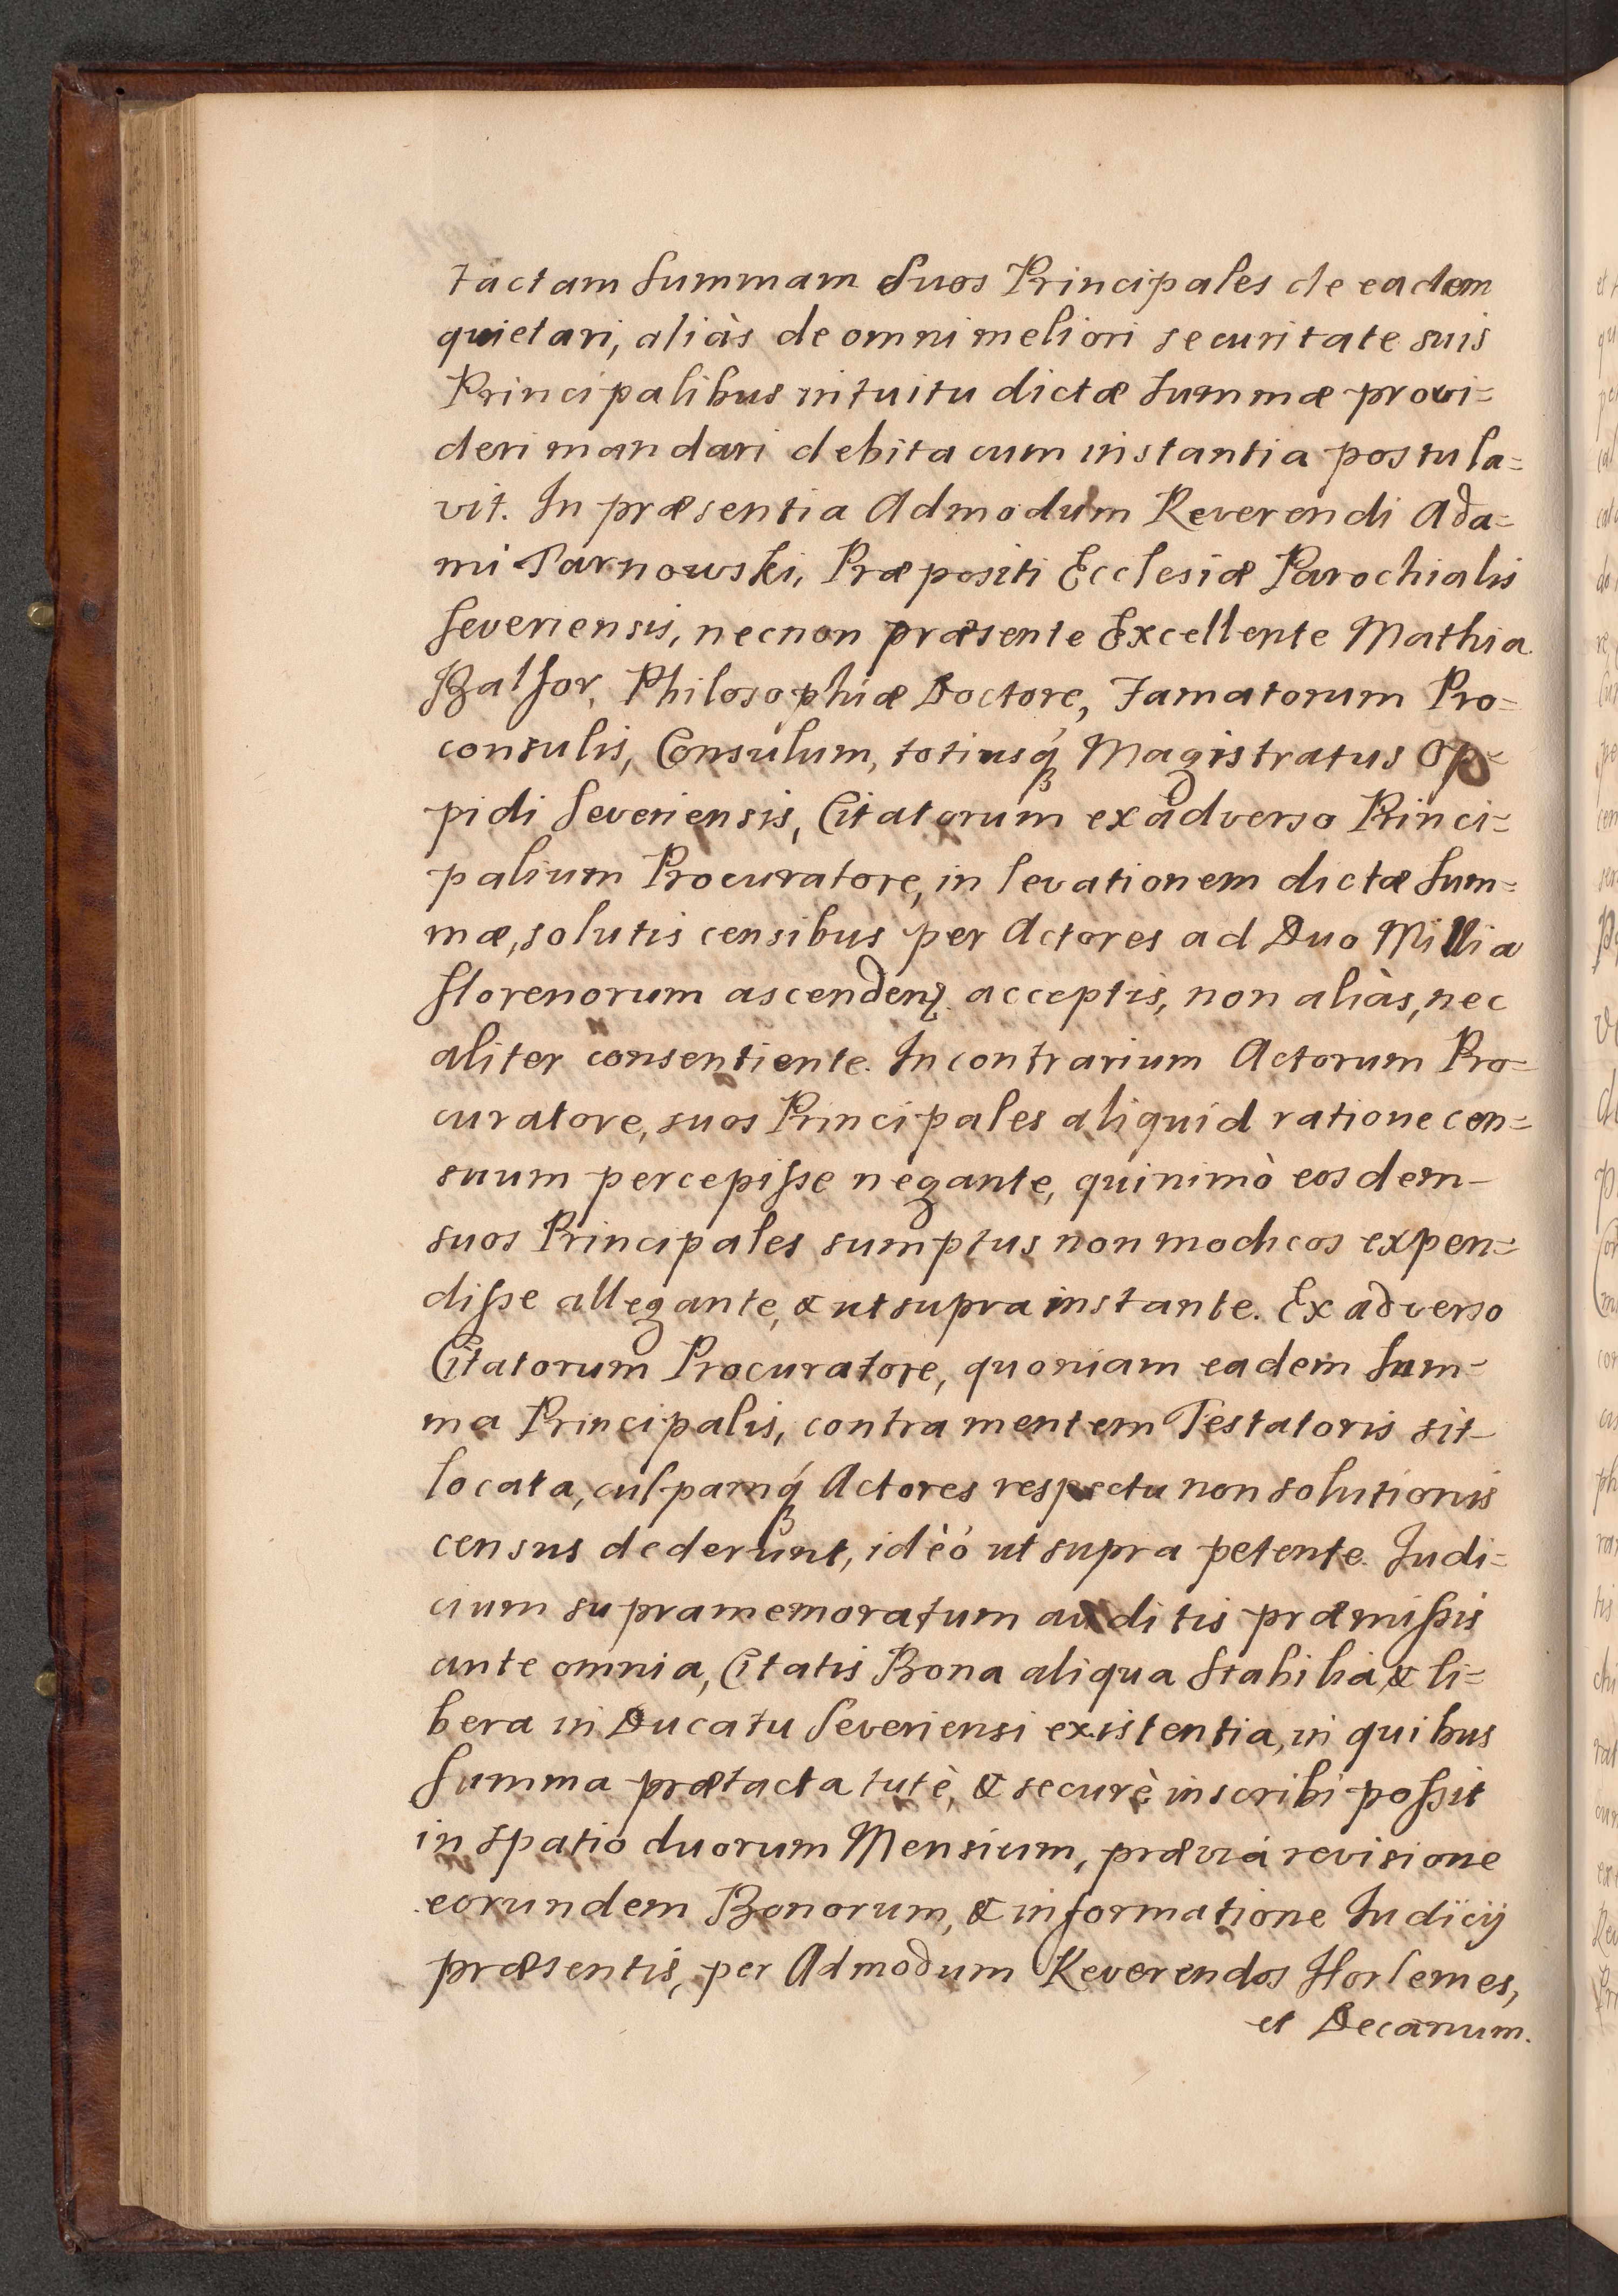 tactam Summam Suos Principales de eadem
quietari, aliàs de omni meliori securitate suis
Principalibus intuitu dictæ Summæ provi=
deri mandari debita cum instantia postula=
vit. In præsentia Admodum Reverendi Ada=
mi Tarnowski, Præpositi Ecclesiæ Parochialis
Severiensis, necnon præsente Excellente Mathia
Balsor, Philosophiæ Doctore, Famatorum Pro=
consulis, Consulum, totiusq́ Magistratus Op=
pidi Severiensis, Citatorum ex adverso Princi=
palium Procuratore, in levationem dictæ Sum=
mæ, solutis censibus per Actores ad Duo Millia
florenorum ascenden. acceptis, non aliàs, nec
aliter consentiente. In contrarium Actorum Pro=
curatore, suos Principales aliquid ratione cen=
suum percepisse negante, quinimò eosdem
suos Principales sumptus non modicos expen=
disse allegante, & ut supra instante. Ex adverso
Citatorum Procuratore, quoniam eadem Sum=
ma Principalis, contra mentem Testatoris sit
locata, culpamq́ Actores respectu non solutionis
census dederunt, idèó ut supra petente. Iudi=
cium supramemoratum auditis præmissis
ante omnia, Citatis Bona aliqua Stabilia, & li=
bera in Ducatu Severiensi existentia, in quibus
Summa prætacta tutè, & securè inscribi possit
in spatio duorum Mensium, prævia revisione
eorundem Bonorum, & informatione Iudicij
præsentis, per Admodum Reverendos Horlemes,
et Decanum.